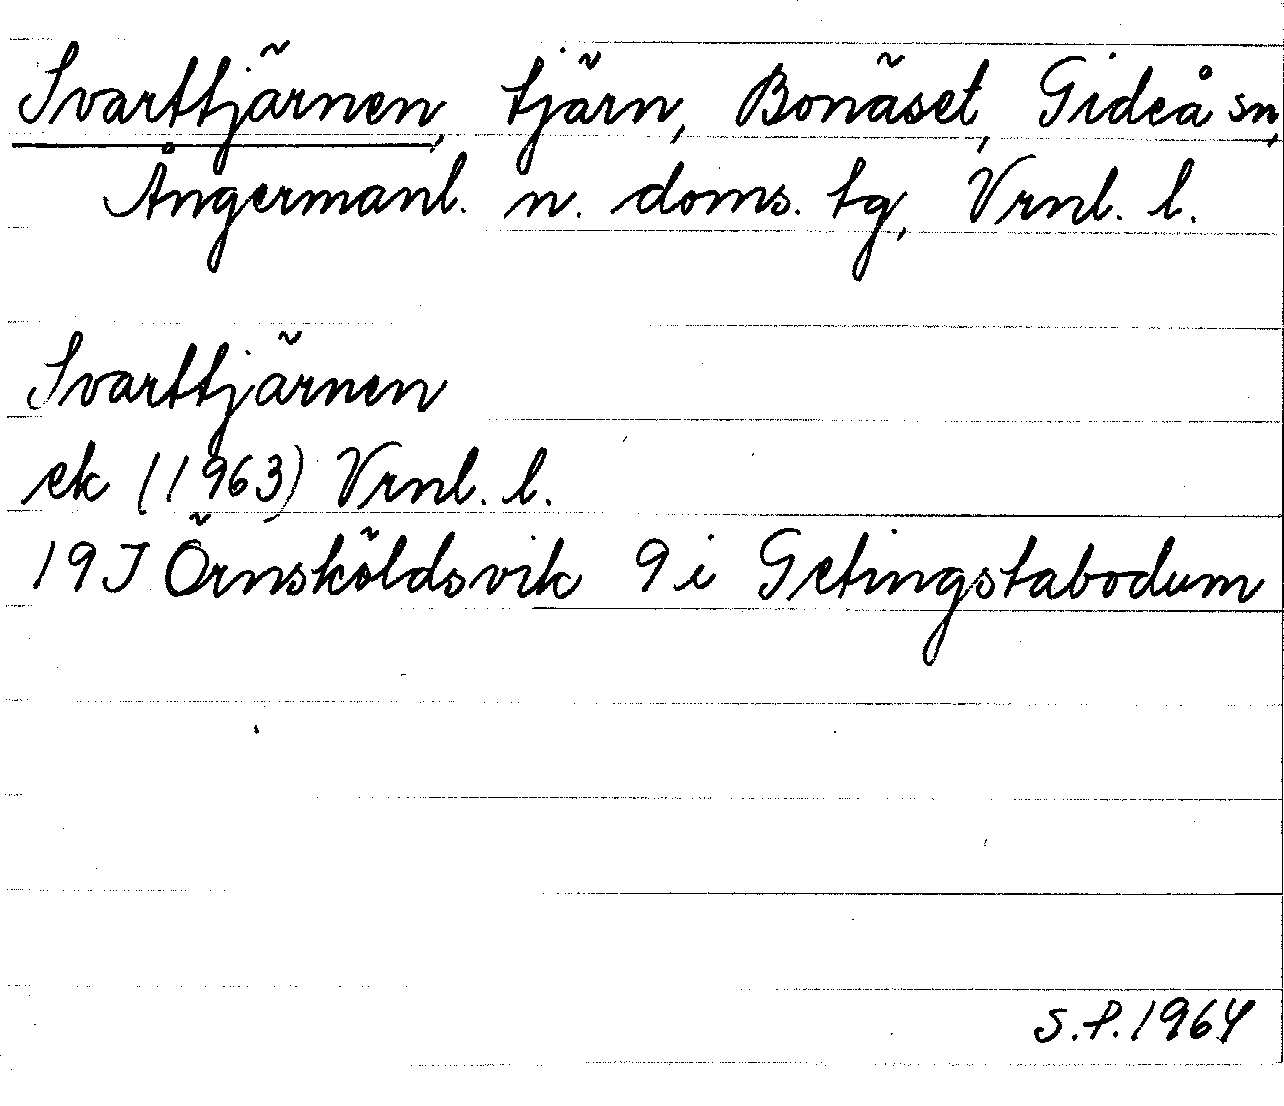 Svarttjärnen, tjärn, Bonäset, Gideå sn,
Ångermanl. n. doms. tg, Vrnl. l.
Svarttjärnen
ek (1963) Vrnl. l.
19J Örnsköldsvik 9i Getingstabodum
S.P.1964